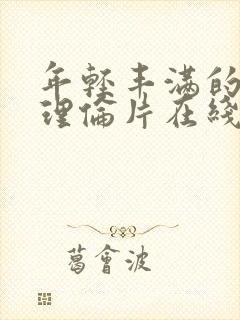 年轻丰满的
理倫片在綫
葛會波